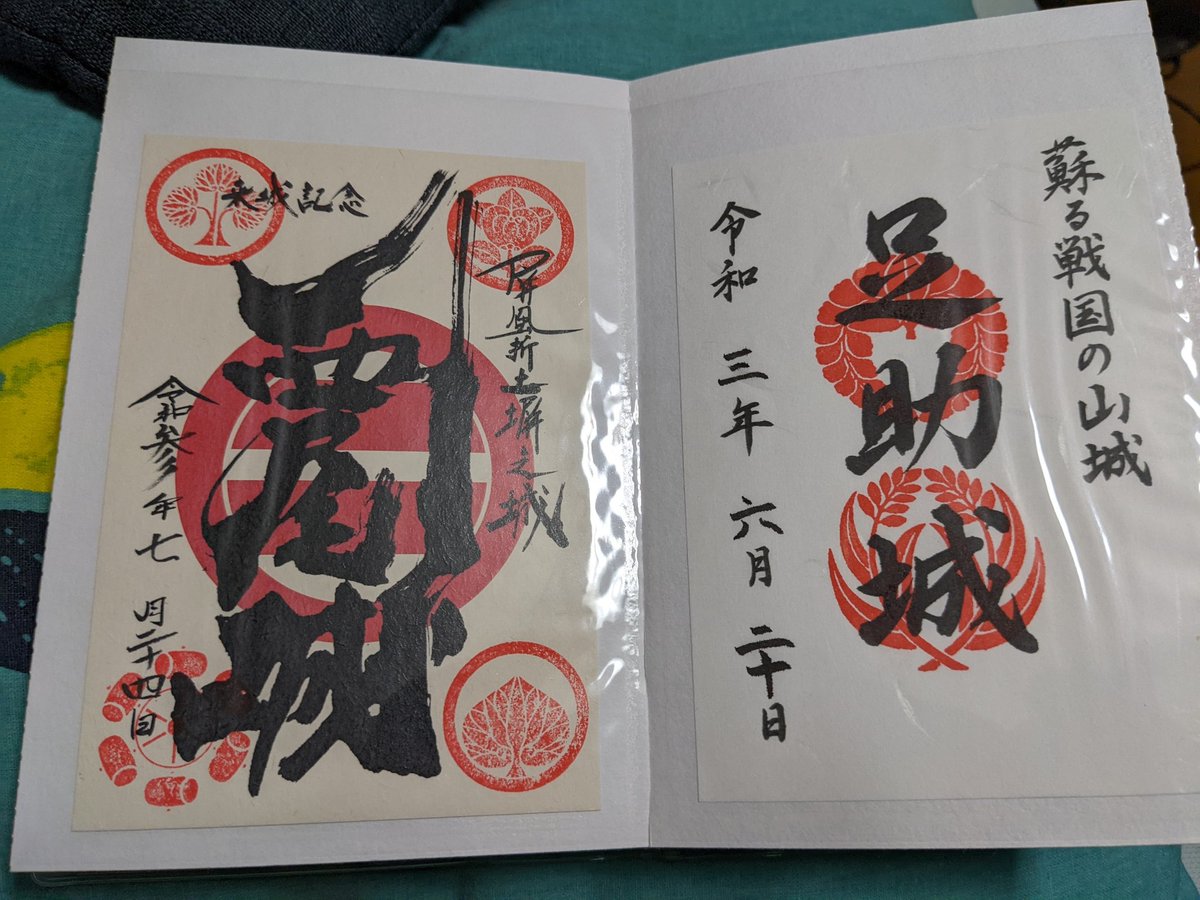 蘇る戦国の山城
足助城
令和 三年 六月 二十日
来城記念
屏風折土塀之城
西尾城
令和参年七月二十四日